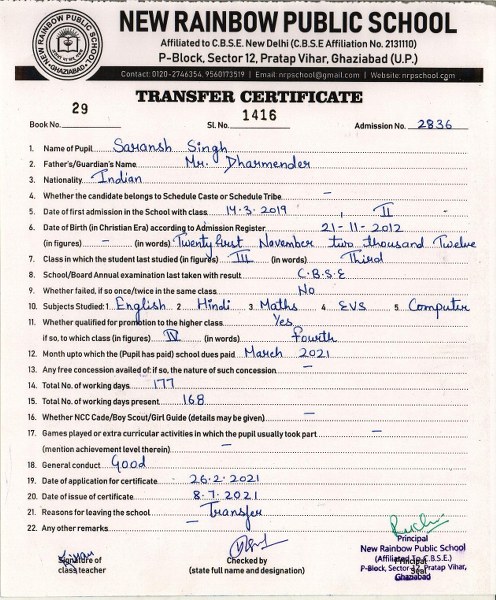 NEW RAINBOW PUBLIC SCHOOL
Affiliated to C.B.S.E. New Delhi (C.B.S.E Affiliation No. 2131110)
P-Block, Sector 12, Pratap Vihar, Ghaziabad (U.P.)
Contact: 0120-2746354, 9560173519 | Email: nrpschool@gmail.com | Website: nrpschool.com
NEW RAINBOW PUBLIC SCHOOL
GHAZIABAD
TRANSFER CERTIFICATE
Book No. 29 Sl. No. 1416 Admission No. 2836
1. Name of Pupil Saransh Singh
2. Father's/Guardian's Name Mr. Dharmender
3. Nationality Indian
4. Whether the candidate belongs to Schedule Caste or Schedule Tribe –
5. Date of first admission in the School with class 14.3.2019, II
6. Date of Birth (in Christian Era) according to Admission Register 21-11-2012
(in figures) – (in words) Twenty first November two thousand Twelve
7. Class in which the student last studied (in figures) III (in words) Third
8. School/Board Annual examination last taken with result C.B.S.E
9. Whether failed, if so once/twice in the same class No
10. Subjects Studied: 1 English 2. Hindi 3. Maths 4. EVS 5. Computer
11. Whether qualified for promotion to the higher class Yes
if so, to which class (in figures) IV (in words) Fourth
12. Month upto which the (Pupil has paid) school dues paid March 2021
13. Any free concession availed of: if so, the nature of such concession –
14. Total No. of working days 177
15. Total No. of working days present 168
16. Whether NCC Cade/Boy Scout/Girl Guide (details may be given) –
17. Games played or extra curricular activities in which the pupil usually took part –
(mention achievement level therein) –
18. General conduct Good
19. Date of application for certificate 26.2.2021
20. Date of issue of certificate 8.7.2021
21. Reasons for leaving the school Transfer
22. Any other remarks –
Signature of
class teacher
Checked by
(state full name and designation)
Principal
New Rainbow Public School
(Affiliated To C.B.S.E.)
P-Block, Sector-12, Pratap Vihar,
Ghaziabad
Principal
Seal